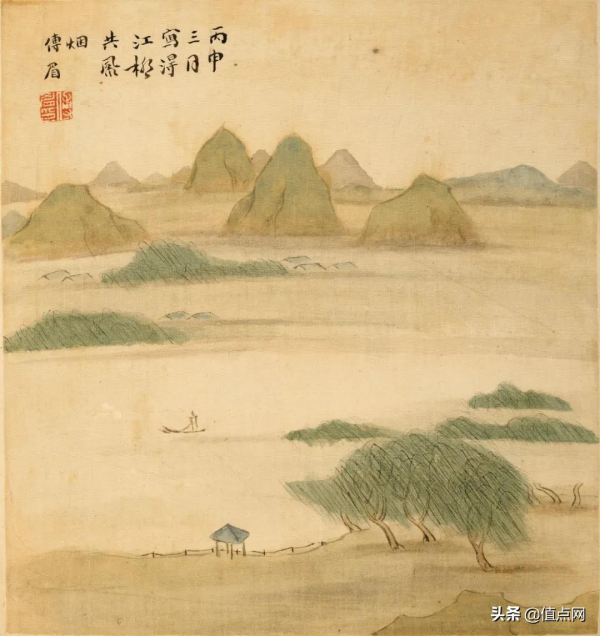 丙申
三月
寫得
江柳
共風
烟
傅眉
头条 @值点网